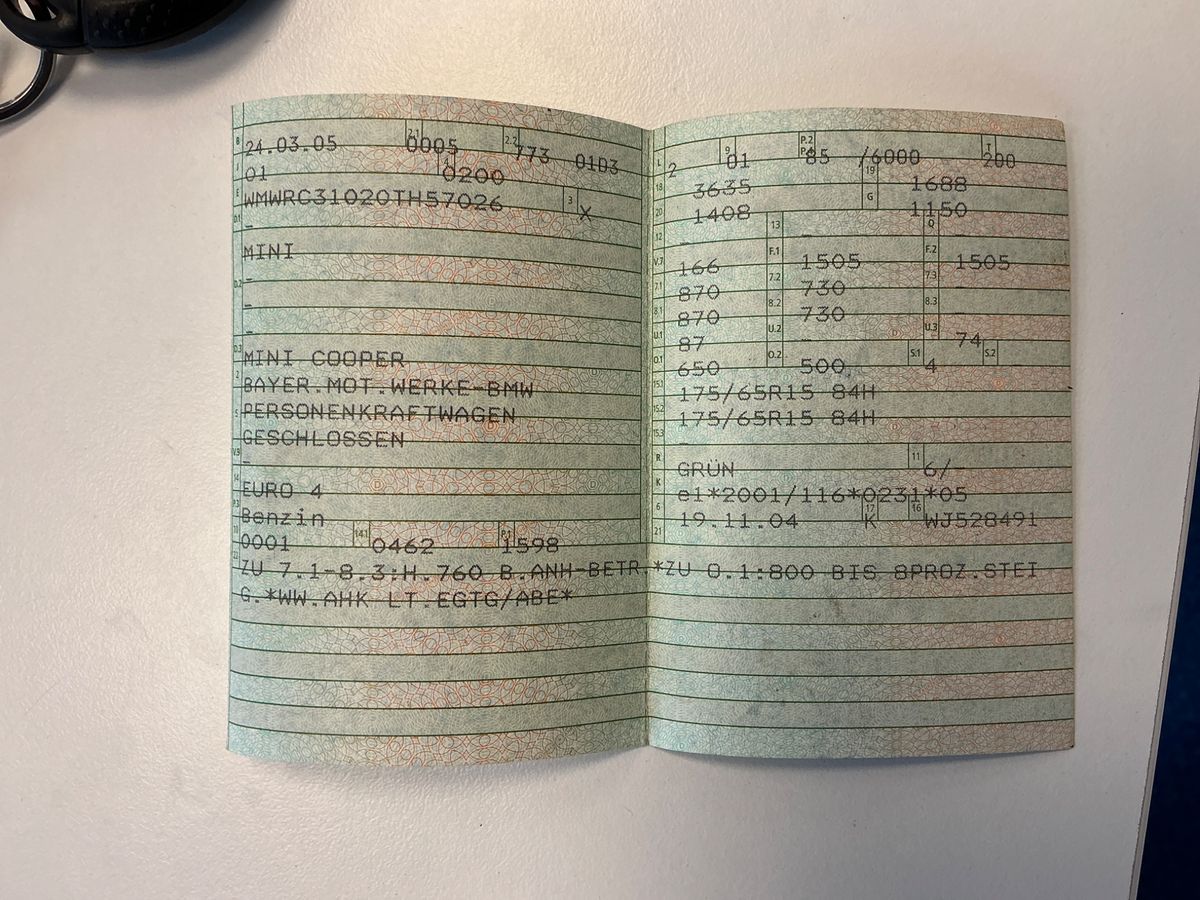 B 24.03.05 2.1 0005 2.2 773 0103
01 4 0200
E WMWRC31020TH57026 3 X
D.1 -
MINI
D.2 -
-
-
D.3 MINI COOPER
2 BAYER.MOT.WERKE-BMW
5 PERSONENKRAFTWAGEN
GESCHLOSSEN
V.9 -
14 EURO 4
P.3 Benzin
10 0001 14.1 0462 P.1 1598
22 ZU 7.1-8.3:H.760 B.ANH-BETR.*ZU O.1:800 BIS 8PROZ.STEI
G.*WW.AHK LT.EGTG/ABE*
L 2 9 01 P.2 P.4 85 /6000 T 200
18 3635 19 1688
20 1408 G 1150
12 - 13 - Q -
V.7 166 F.1 1505 F.2 1505
7.1 870 7.2 730 7.3 -
8.1 870 8.2 730 8.3 -
U.1 87 U.2 - U.3 74
O.1 650 O.2 500 S.1 4 S.2 -
15.1 175/65R15 84H
15.2 175/65R15 84H
15.3 -
R GRÜN 11 6/-
K e1*2001/116*0231*05
6 19.11.04 17 K 16 WJ528491
21